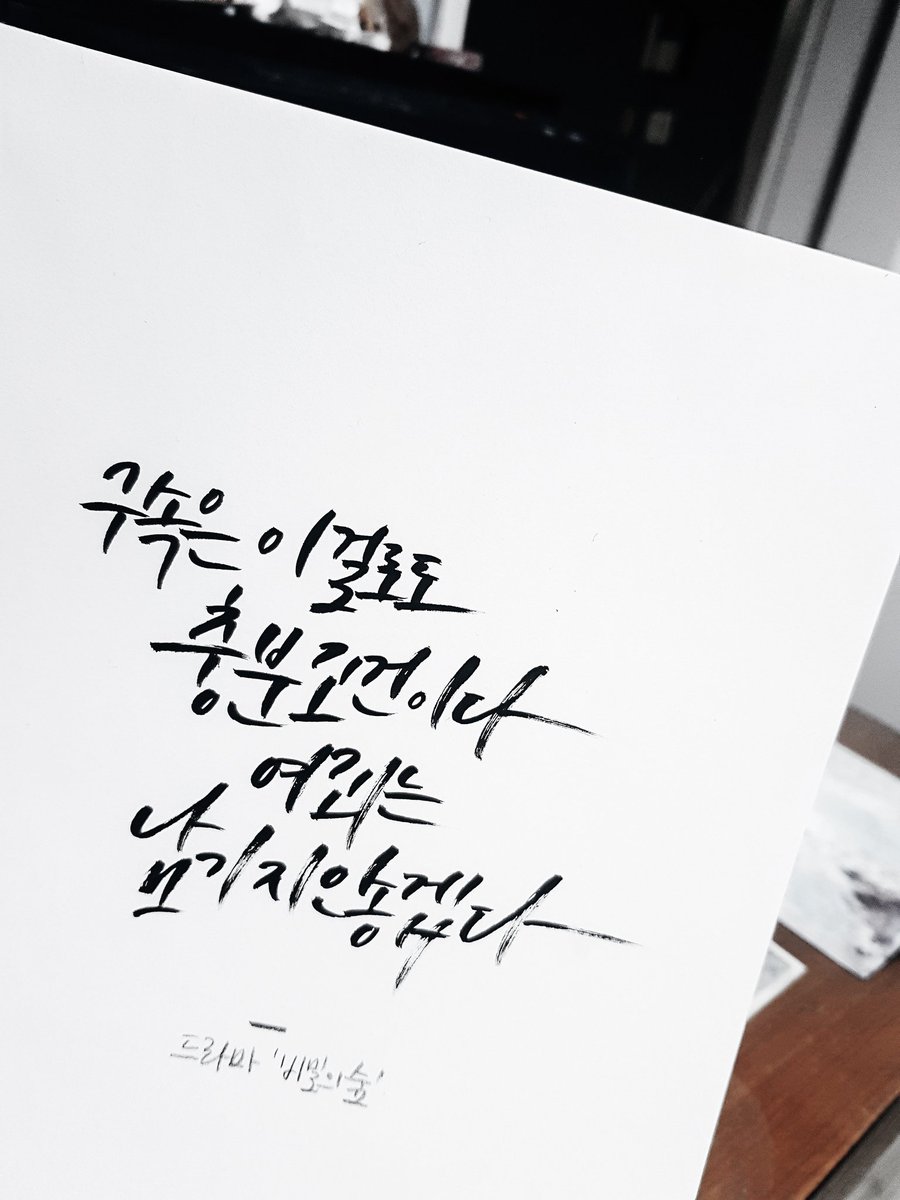 구속은 이걸로도
충분조건이다
여죄는
남기지않겠다
드라마 '비밀의숲'